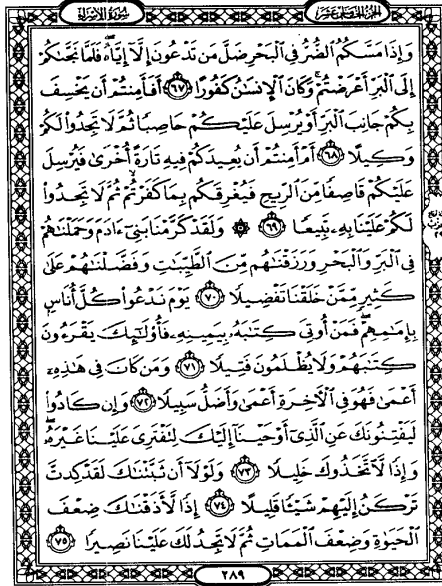 سُورَةُ الإِسْرَاءِ
الجُزْءُ الخَامِسَ عَشَرَ
وَإِذَا مَسَّكُمُ ٱلضُّرُّ فِي ٱلۡبَحۡرِ ضَلَّ مَن تَدۡعُونَ إِلَّآ إِيَّاهُۖ فَلَمَّا نَجَّىٰكُمۡ
إِلَى ٱلۡبَرِّ أَعۡرَضۡتُمۡۚ وَكَانَ ٱلۡإِنسَٰنُ كَفُورًا ٦٧ أَفَأَمِنتُمۡ أَن يَخۡسِفَ
بِكُمۡ جَانِبَ ٱلۡبَرِّ أَوۡ يُرۡسِلَ عَلَيۡكُمۡ حَاصِبٗا ثُمَّ لَا تَجِدُواْ لَكُمۡ
وَكِيلًا ٦٨ أَمۡ أَمِنتُمۡ أَن يُعِيدَكُمۡ فِيهِ تَارَةً أُخۡرَىٰ فَيُرۡسِلَ
عَلَيۡكُمۡ قَاصِفٗا مِّنَ ٱلرِّيحِ فَيُغۡرِقَكُم بِمَا كَفَرۡتُمۡ ثُمَّ لَا تَجِدُواْ
لَكُمۡ عَلَيۡنَا بِهِۦ تَبِيعٗا ٦٩ ۞ وَلَقَدۡ كَرَّمۡنَا بَنِيٓ ءَادَمَ وَحَمَلۡنَٰهُمۡ
فِي ٱلۡبَرِّ وَٱلۡبَحۡرِ وَرَزَقۡنَٰهُم مِّنَ ٱلطَّيِّبَٰتِ وَفَضَّلۡنَٰهُمۡ عَلَىٰ
كَثِيرٖ مِّمَّنۡ خَلَقۡنَا تَفۡضِيلٗا ٧٠ يَوۡمَ نَدۡعُواْ كُلَّ أُنَاسِۭ
بِإِمَٰمِهِمۡۖ فَمَنۡ أُوتِيَ كِتَٰبَهُۥ بِيَمِينِهِۦ فَأُوْلَٰٓئِكَ يَقۡرَءُونَ
كِتَٰبَهُمۡ وَلَا يُظۡلَمُونَ فَتِيلٗا ٧١ وَمَن كَانَ فِي هَٰذِهِۦٓ
أَعۡمَىٰ فَهُوَ فِي ٱلۡأٓخِرَةِ أَعۡمَىٰ وَأَضَلُّ سَبِيلٗا ٧٢ وَإِن كَادُواْ
لَيَفۡتِنُونَكَ عَنِ ٱلَّذِيٓ أَوۡحَيۡنَآ إِلَيۡكَ لِتَفۡتَرِيَ عَلَيۡنَا غَيۡرَهُۥۖ
وَإِذٗا لَّٱتَّخَذُوكَ خَلِيلٗا ٧٣ وَلَوۡلَآ أَن ثَبَّتۡنَٰكَ لَقَدۡ كِدتَّ
تَرۡكَنُ إِلَيۡهِمۡ شَيۡـٔٗا قَلِيلًا ٧٤ إِذٗا لَّأَذَقۡنَٰكَ ضِعۡفَ
ٱلۡحَيَوٰةِ وَضِعۡفَ ٱلۡمَمَاتِ ثُمَّ لَا تَجِدُ لَكَ عَلَيۡنَا نَصِيرٗا ٧٥
٢٨٩